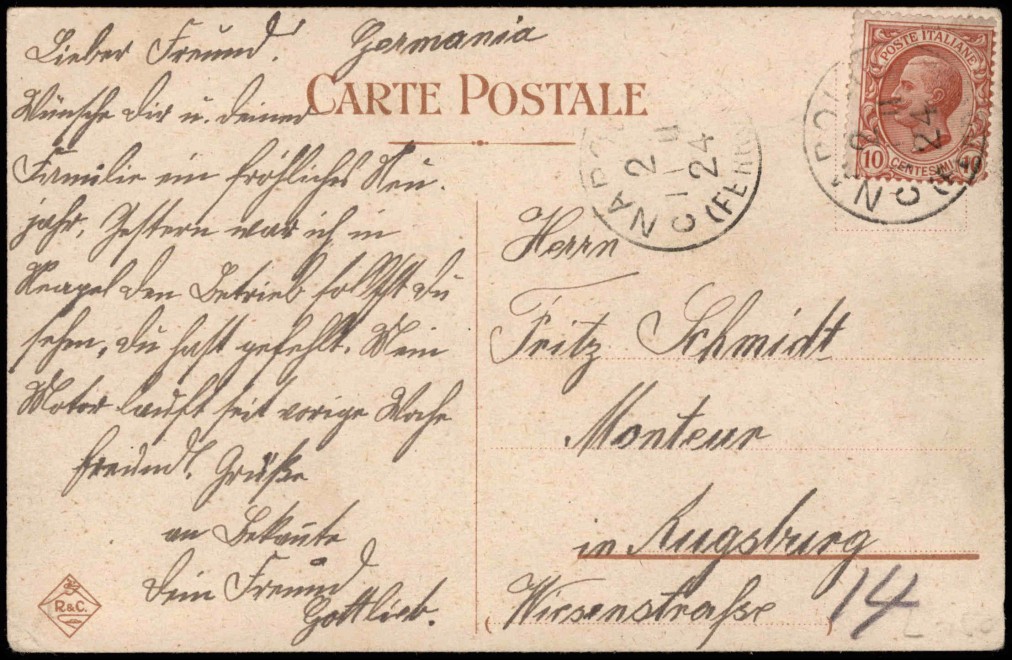 Lieber Freund! Germania
CARTE POSTALE
Wünsche dir u. deiner
Familie ein fröhliches Neu-
jahr, Gestern war ich in
Neapel den Betrieb sollst du
sehen, du hast gefehlt. Mein
Motor lauft seit vorige Woche
Freundl. Grüße
an Bekannte
Dein Freund
Gottlieb.
R&C.
POSTE ITALIANE
10 CENTESIMI 10
NAPO
2 II
24
C
(FERR
NAPO
2 II
24
C
Herrn
Fritz Schmidt
Monteur
in Augsburg
(Wiesenstraße) 14